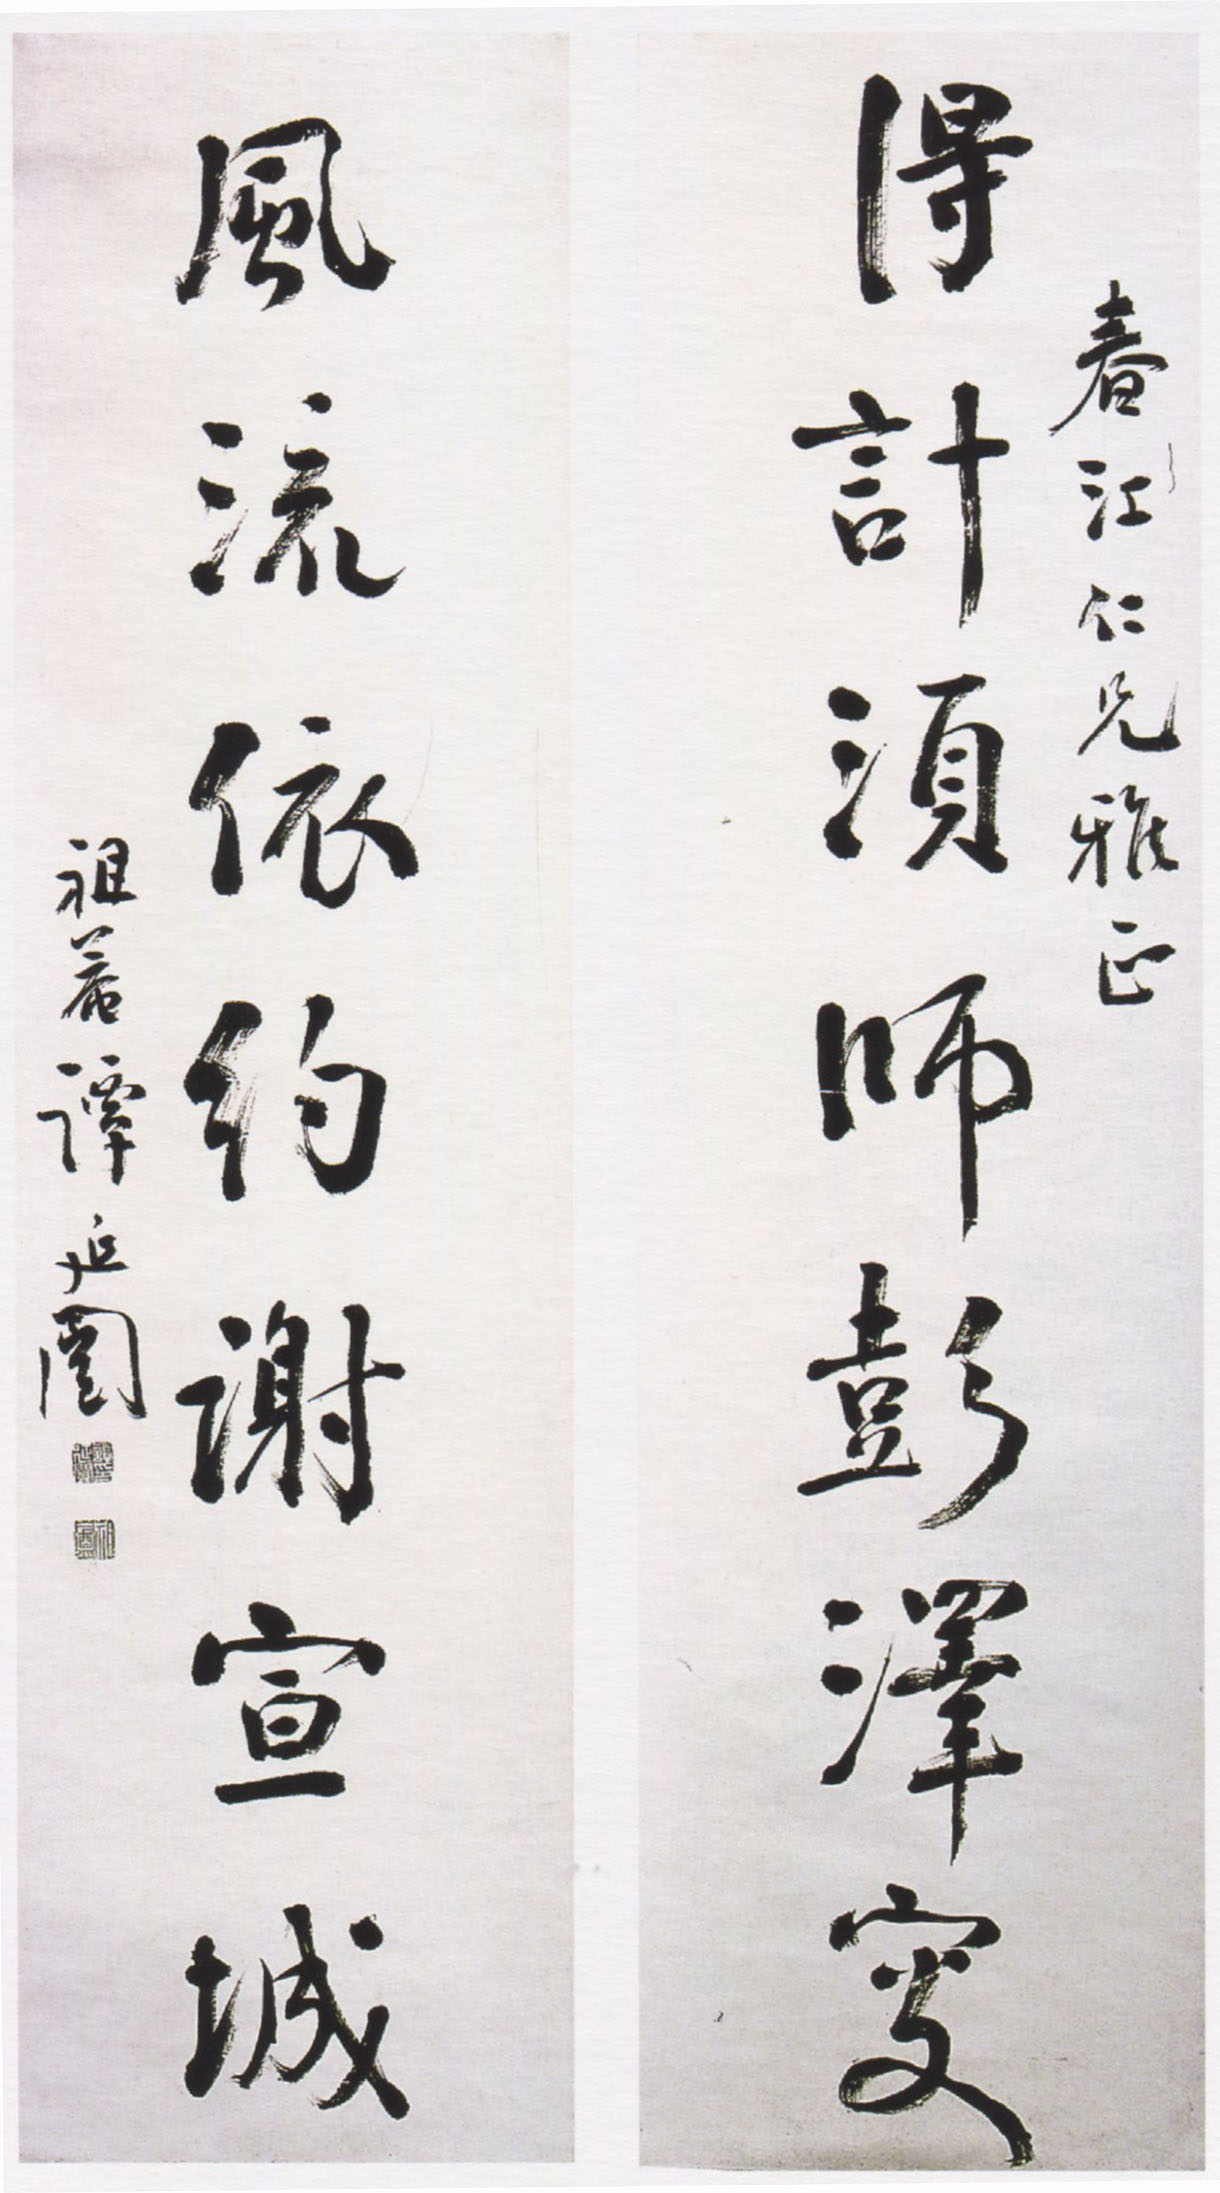 春江仁兄雅正
得計須師彭澤叟
風流依約謝宣城
祖菴譚延闓